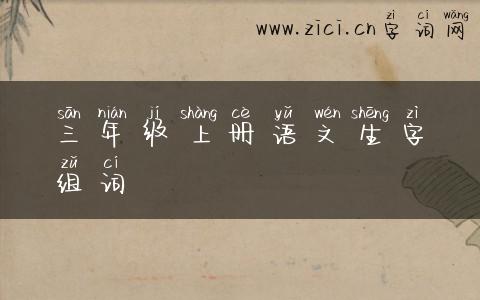 zì cí wǎng
www.zici.cn字词网
sān nián jí shàng cè yǔ wén shēng zì
三年级上册语文生字
zǔ cí
组词